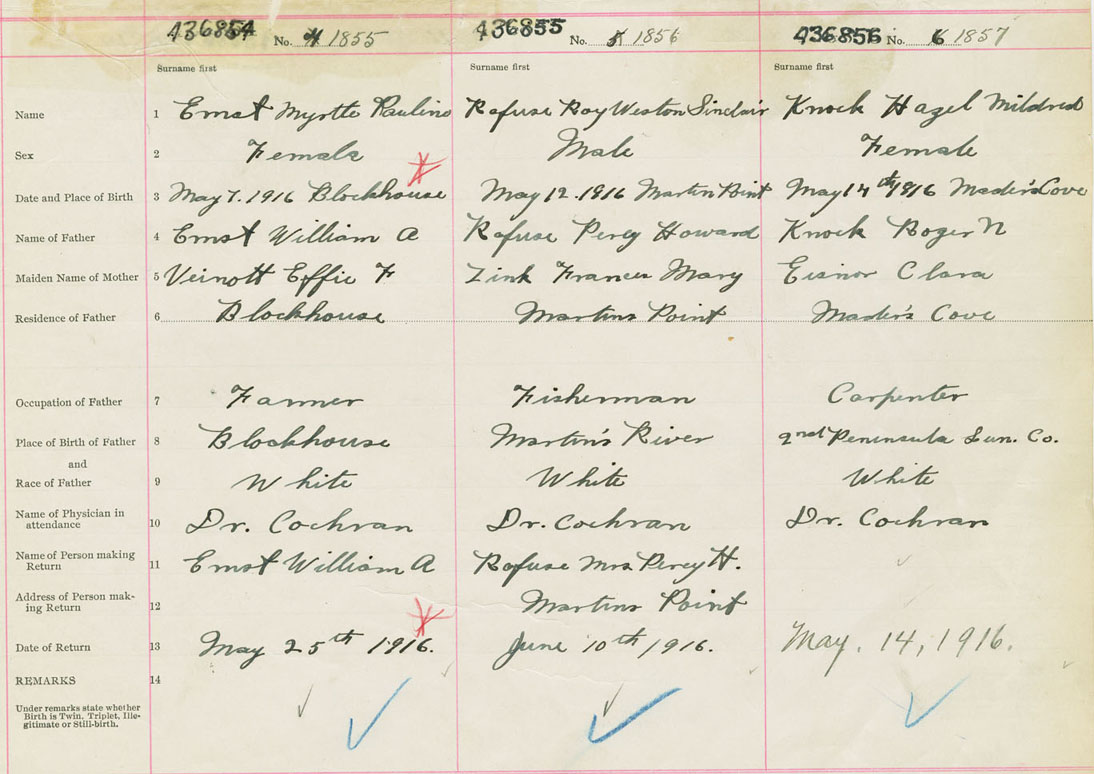 436854 No. 4 1855 436855 No. 5 1856 436856 No. 6 1857
Surname first Surname first Surname first
Name 1 Ernst Myrtle Pauline Rafuse Roy Weston Sinclair Knock Hazel Mildred
Sex 2 Female Male Female
Date and Place of Birth 3 May 7. 1916 Blockhouse May 12. 1916 Martin Point May 14th 1916 Mader's Cove
Name of Father 4 Ernst William A Rafuse Percy Howard Knock Roger N
Maiden Name of Mother 5 Veinott Effie F Zink Frances Mary Eisnor Clara
Residence of Father 6 Blockhouse Martins Point Mader's Cove
Occupation of Father 7 Farmer Fisherman Carpenter
Place of Birth of Father 8 Blockhouse Martin's River 2nd Peninsula Lun. Co.
and
Race of Father 9 White White White
Name of Physician in
attendance 10 Dr. Cochran Dr. Cochran Dr. Cochran
Name of Person making
Return 11 Ernst William A Rafuse Mrs Percy H.
Address of Person mak-
ing Return 12 Martins Point
Date of Return 13 May 25th 1916. June 10th 1916. May. 14, 1916.
REMARKS 14
Under remarks state whether
Birth is Twin, Triplet, Ille-
gitimate or Still-birth.